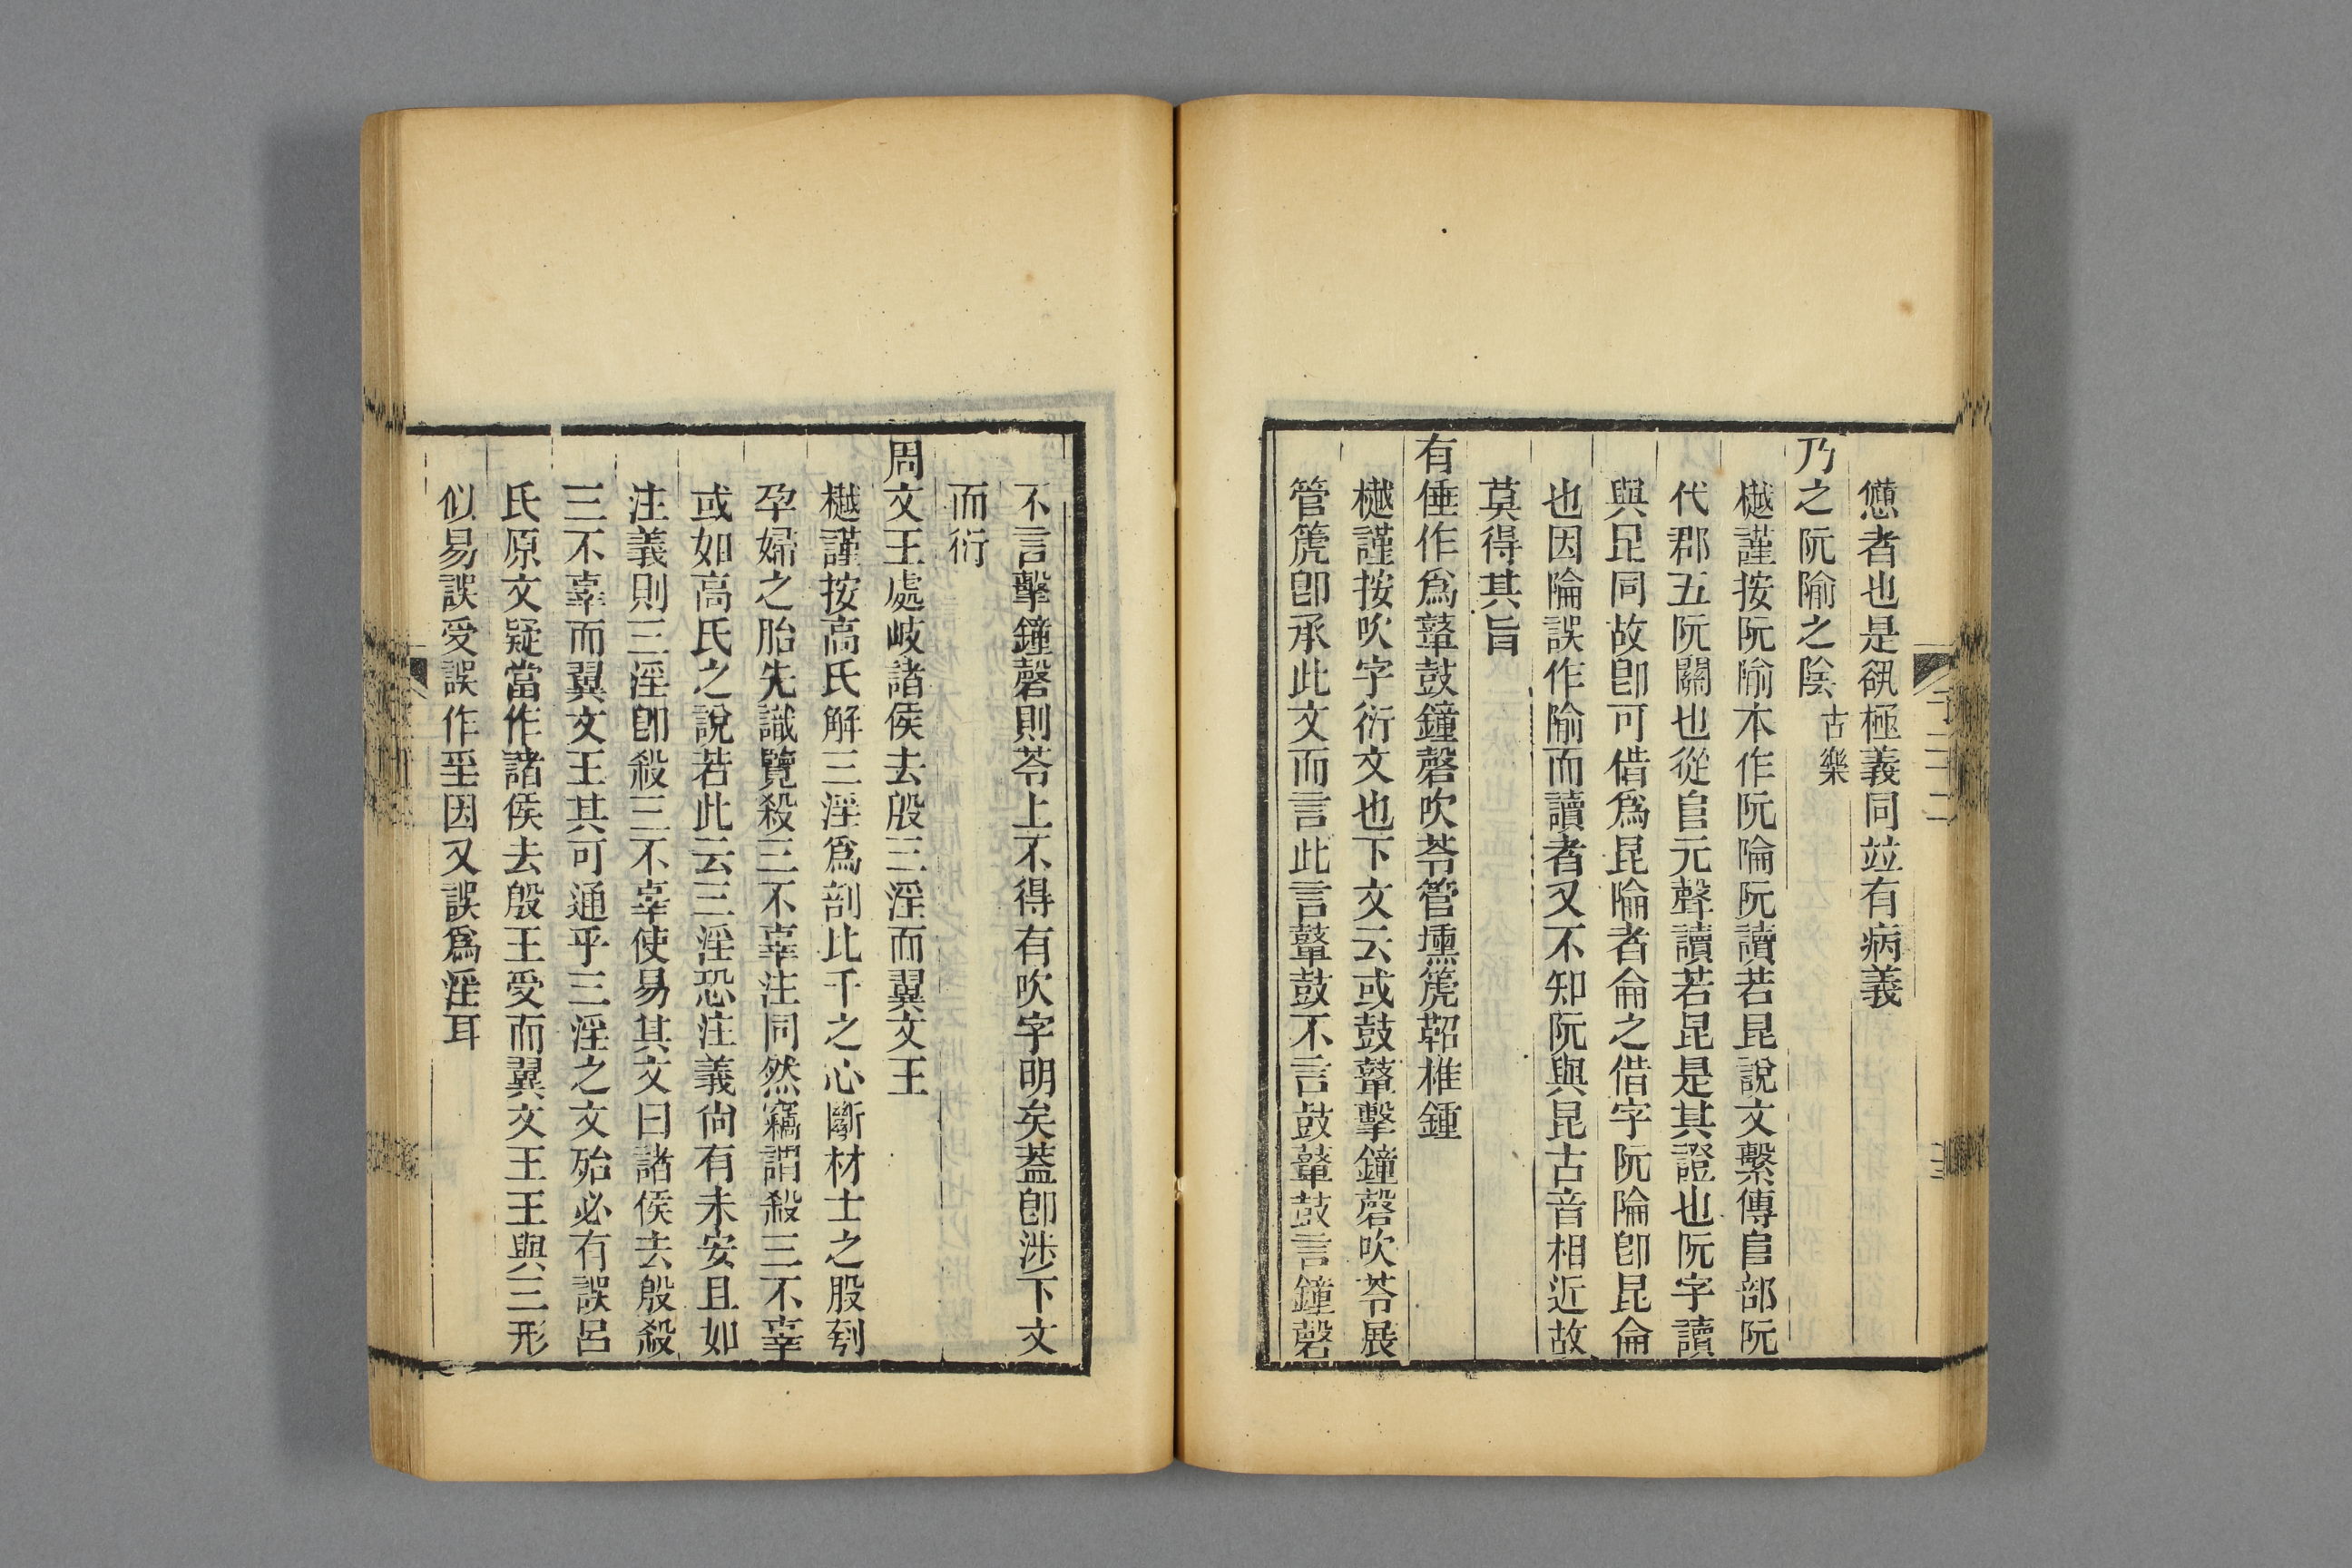 憊者也是㕁極義同竝有病義
乃之阮隃之陰古樂
樾謹按阮隃本作阮陯阮讀若昆說文繫傳𨸏部阮
代郡五阮關也從𨸏元聲讀若昆是其證也阮字讀
與昆同故卽可借爲昆陯者侖之借字阮陯卽昆侖
也因陯誤作隃而讀者又不知阮與昆古音相近故
莫得其旨
有倕作爲鼙鼓鐘磬吹苓管壎箎鞀椎鍾
樾謹按吹字衍文也下文云或鼓鼙擊鐘磬吹苓展
管箎卽承此文而言此言鼙鼓不言鼓鼙鼓言鐘磬
不言擊鐘磬則苓上不得有吹字明矣葢卽涉下文
而衍
周文王處岐諸侯去殷三淫而翼文王
樾謹按高氏解三淫爲剖比干之心斷材士之股刳
孕婦之胎先識覽殺三不辜注同然竊謂殺三不辜
或如高氏之說若此云三淫恐注義尙有未安且如
注義則三淫卽殺三不辜使易其文曰諸侯去殷殺
三不辜而翼文王其可通乎三淫之文殆必有誤呂
氏原文疑當作諸侯去殷王受而翼文王王與三形
似易誤受誤作㸒因又誤爲淫耳